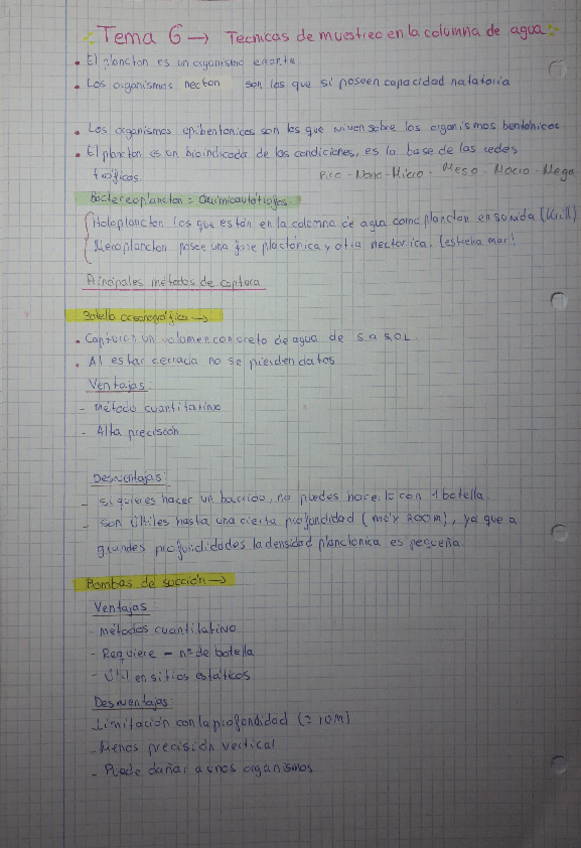 Tema 6 → Tecnicas de muestreo en la columna de agua
• El plancton es un organismo errante
• Los organismos necton son los que si poseen capacidad natatoria
• Los organismos epibentonicos son los que viven sobre los organismos bentónicos
• El plancton es un bioindicador de las condiciones, es la base de las redes
tróficas. Pico - Nano - Micro - Meso - Macro - Mega
Bacterioplancton = Quimioautótrofos
Holoplancton los que están en la columna de agua como plancton en su vida (Krill)
Meroplancton posee una fase plactónica y otra nectonica. (estrella mar)
Principales métodos de captura
Botella oceanográfica →
• Capturan un volumen concreto de agua de 5 a 50L
• Al estar cerrada no se pierden datos
Ventajas:
- Método cuantitativo
- Alta precisión
Desventajas:
- Si quieres hacer un barrido, no puedes hacerlo con 1 botella
- son útiles hasta una cierta profundidad (máx 200m), ya que a
grandes profundidades la densidad planctonica es pequeña
Bombas de succión →
Ventajas:
- métodos cuantitativo
- Requiere - nº de botella
- Útil en sitios estáticos
Desventajas:
- Limitación con la profundidad (= 10m)
- Menos precisión vertical
- Puede dañar a unos organismos